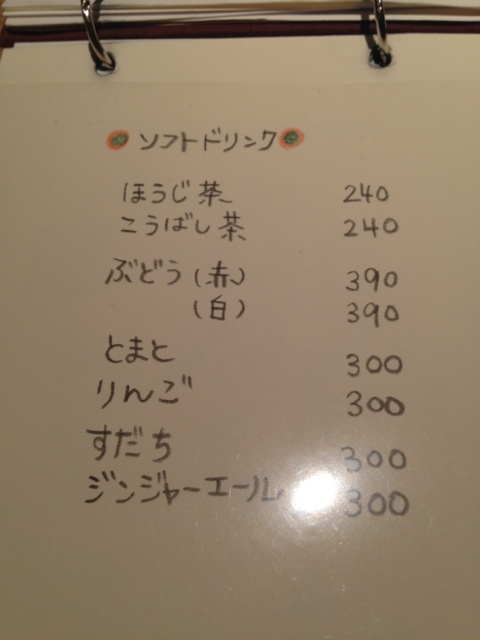 ソフトドリンク
ほうじ茶 240
こうばし茶 240
ぶどう(赤) 390
(白) 390
とまと 300
りんご 300
すだち 300
ジンジャーエール 300